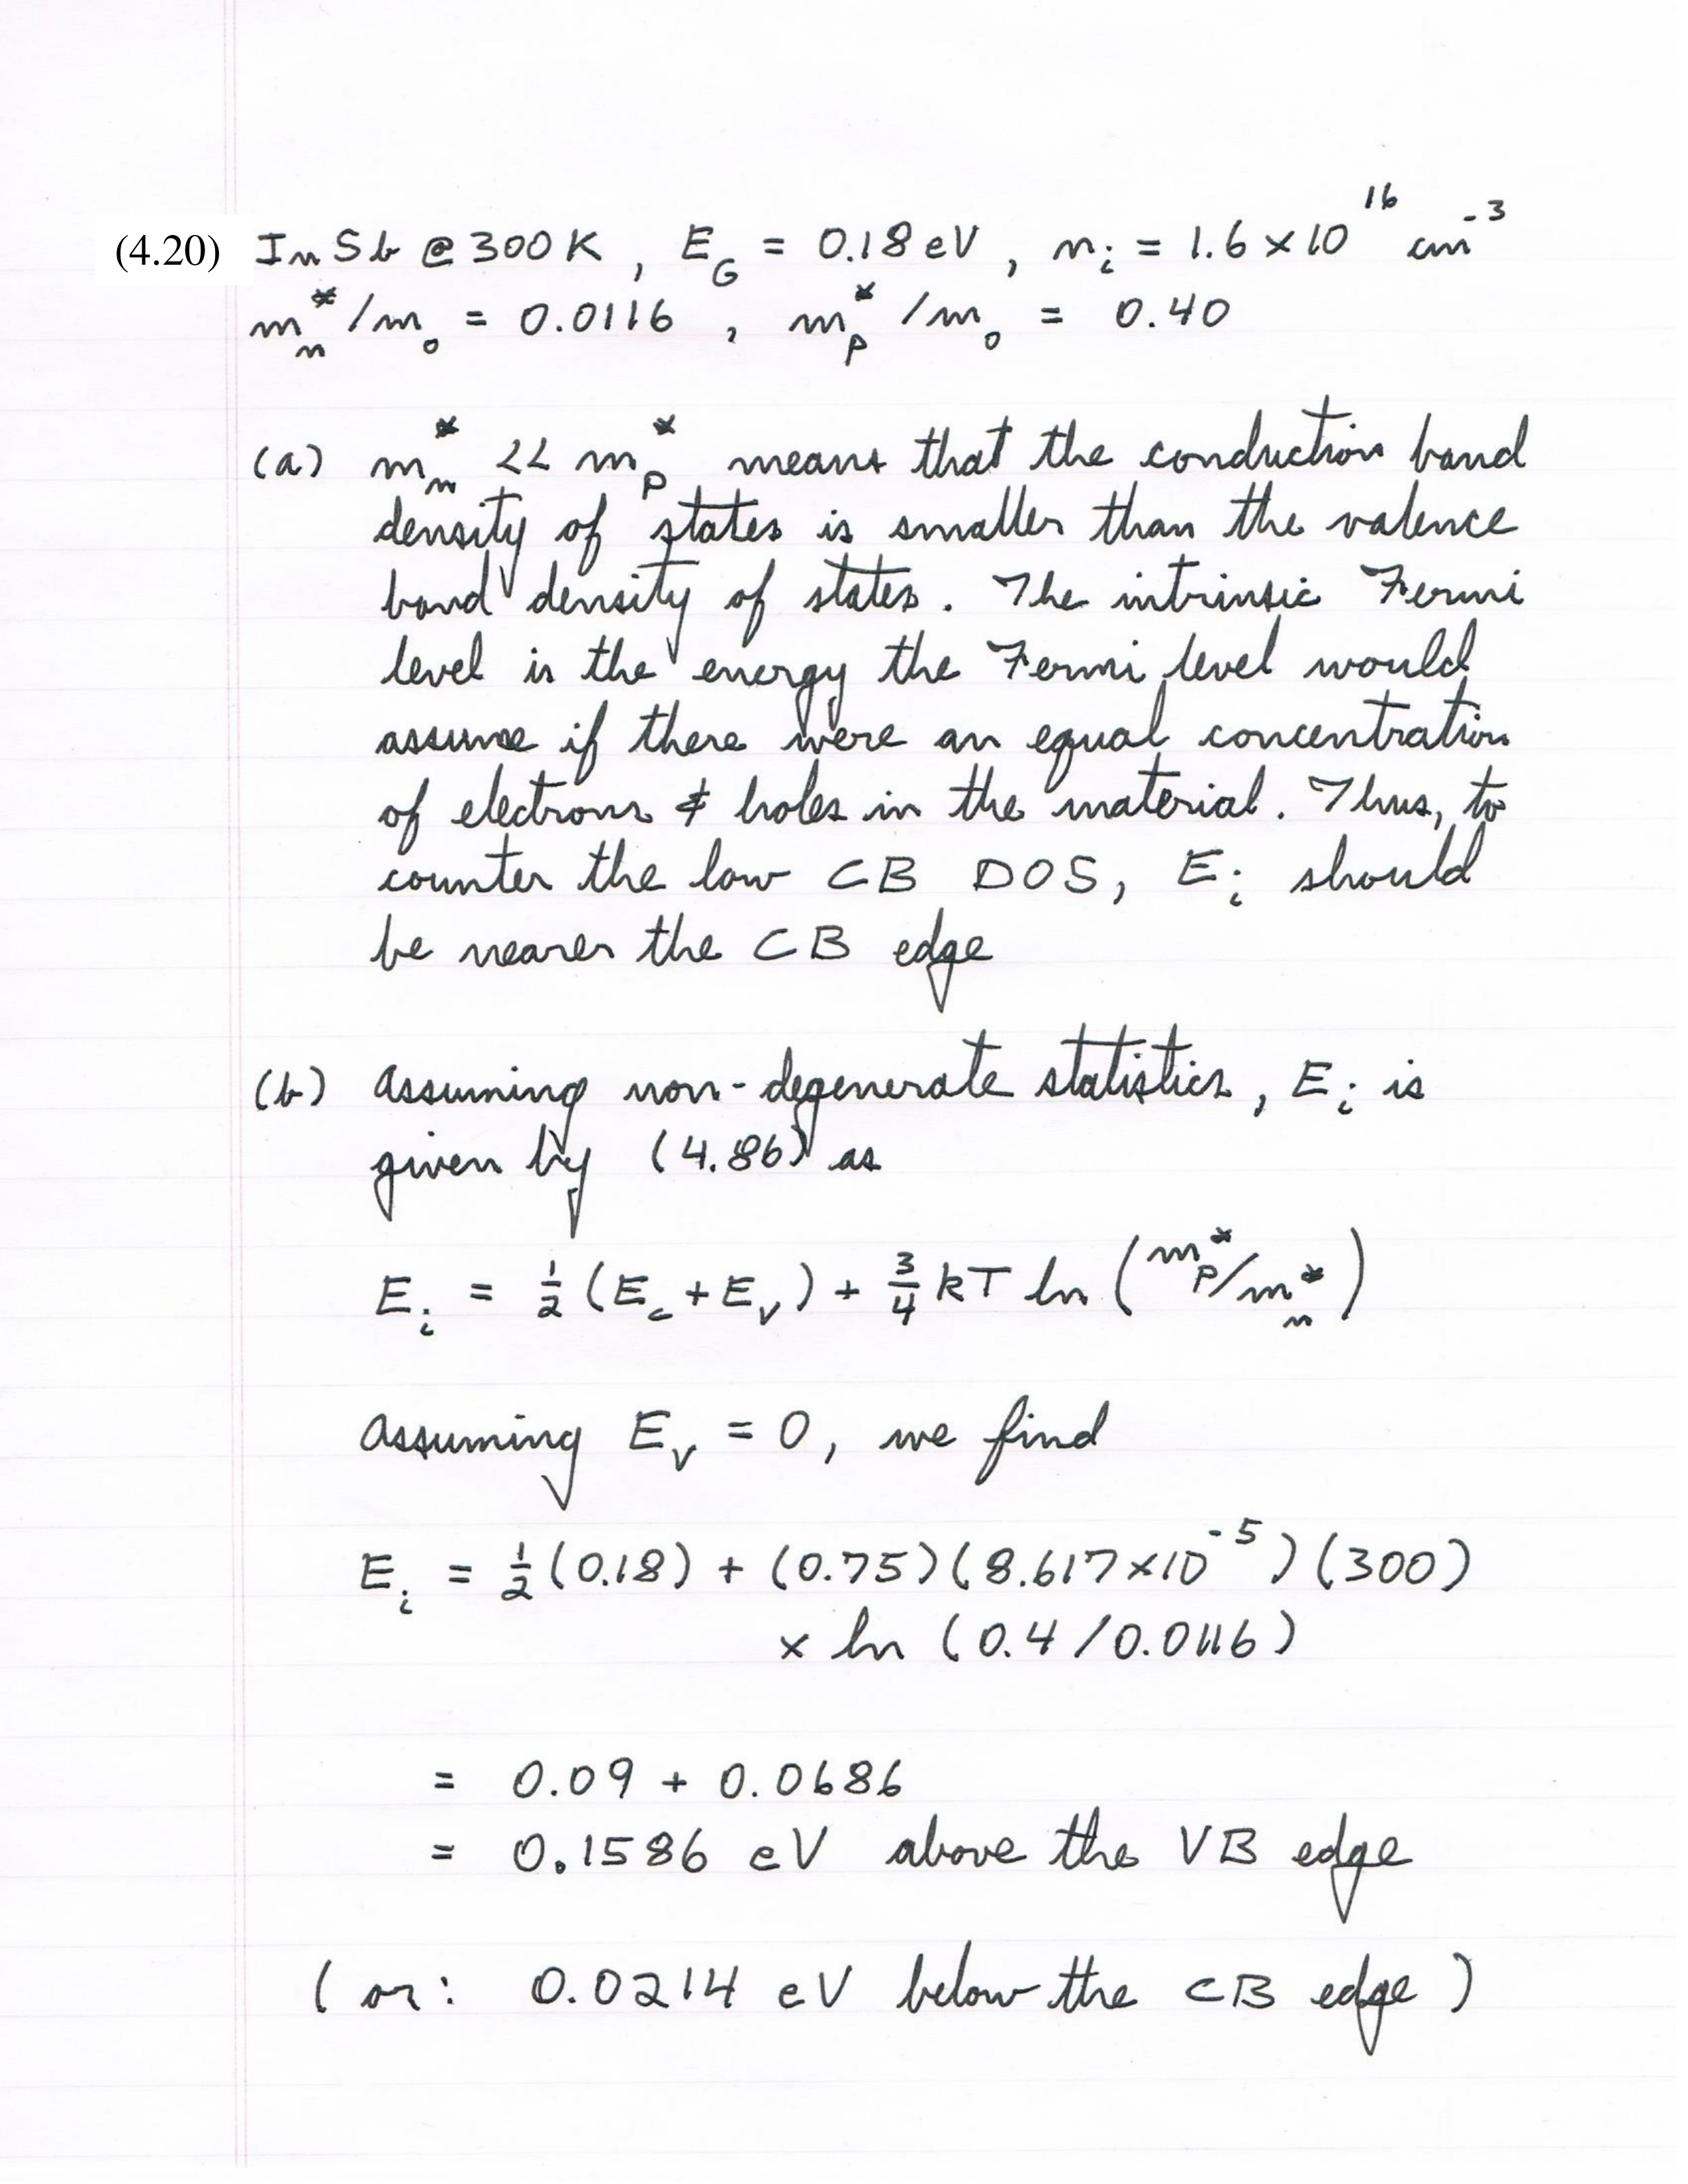 (4.20) InSb @ 300K, E_G = 0.18 eV, n_i = 1.6 × 10^16 cm^-3
m_n^*/m_0 = 0.0116, m_p^*/m_0 = 0.40
(a) m_n^* << m_p^* means that the conduction band
density of states is smaller than the valence
band density of states. The intrinsic Fermi
level is the energy the Fermi level would
assume if there were an equal concentration
of electrons & holes in the material. Thus, to
counter the low CB DOS, E_i should
be nearer the CB edge
(b) Assuming non-degenerate statistics, E_i is
given by (4.86) as
E_i = 1/2 (E_c + E_v) + 3/4 kT ln (m_p^*/m_n^*)
Assuming E_v = 0, we find
E_i = 1/2 (0.18) + (0.75)(8.617 × 10^-5)(300)
× ln (0.4/0.0116)
= 0.09 + 0.0686
= 0.1586 eV above the VB edge
(or: 0.0214 eV below the CB edge)